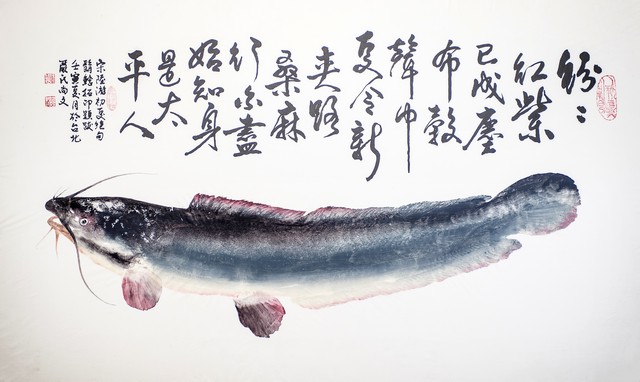 紛〻
紅紫
已成塵
布穀
聲中
夏令新
夾路
桑麻
行不盡
始知身
是太
平人
宋陸游初夏絕句
拓印題跋
壬寅夏月於台北
嚴氏尚文